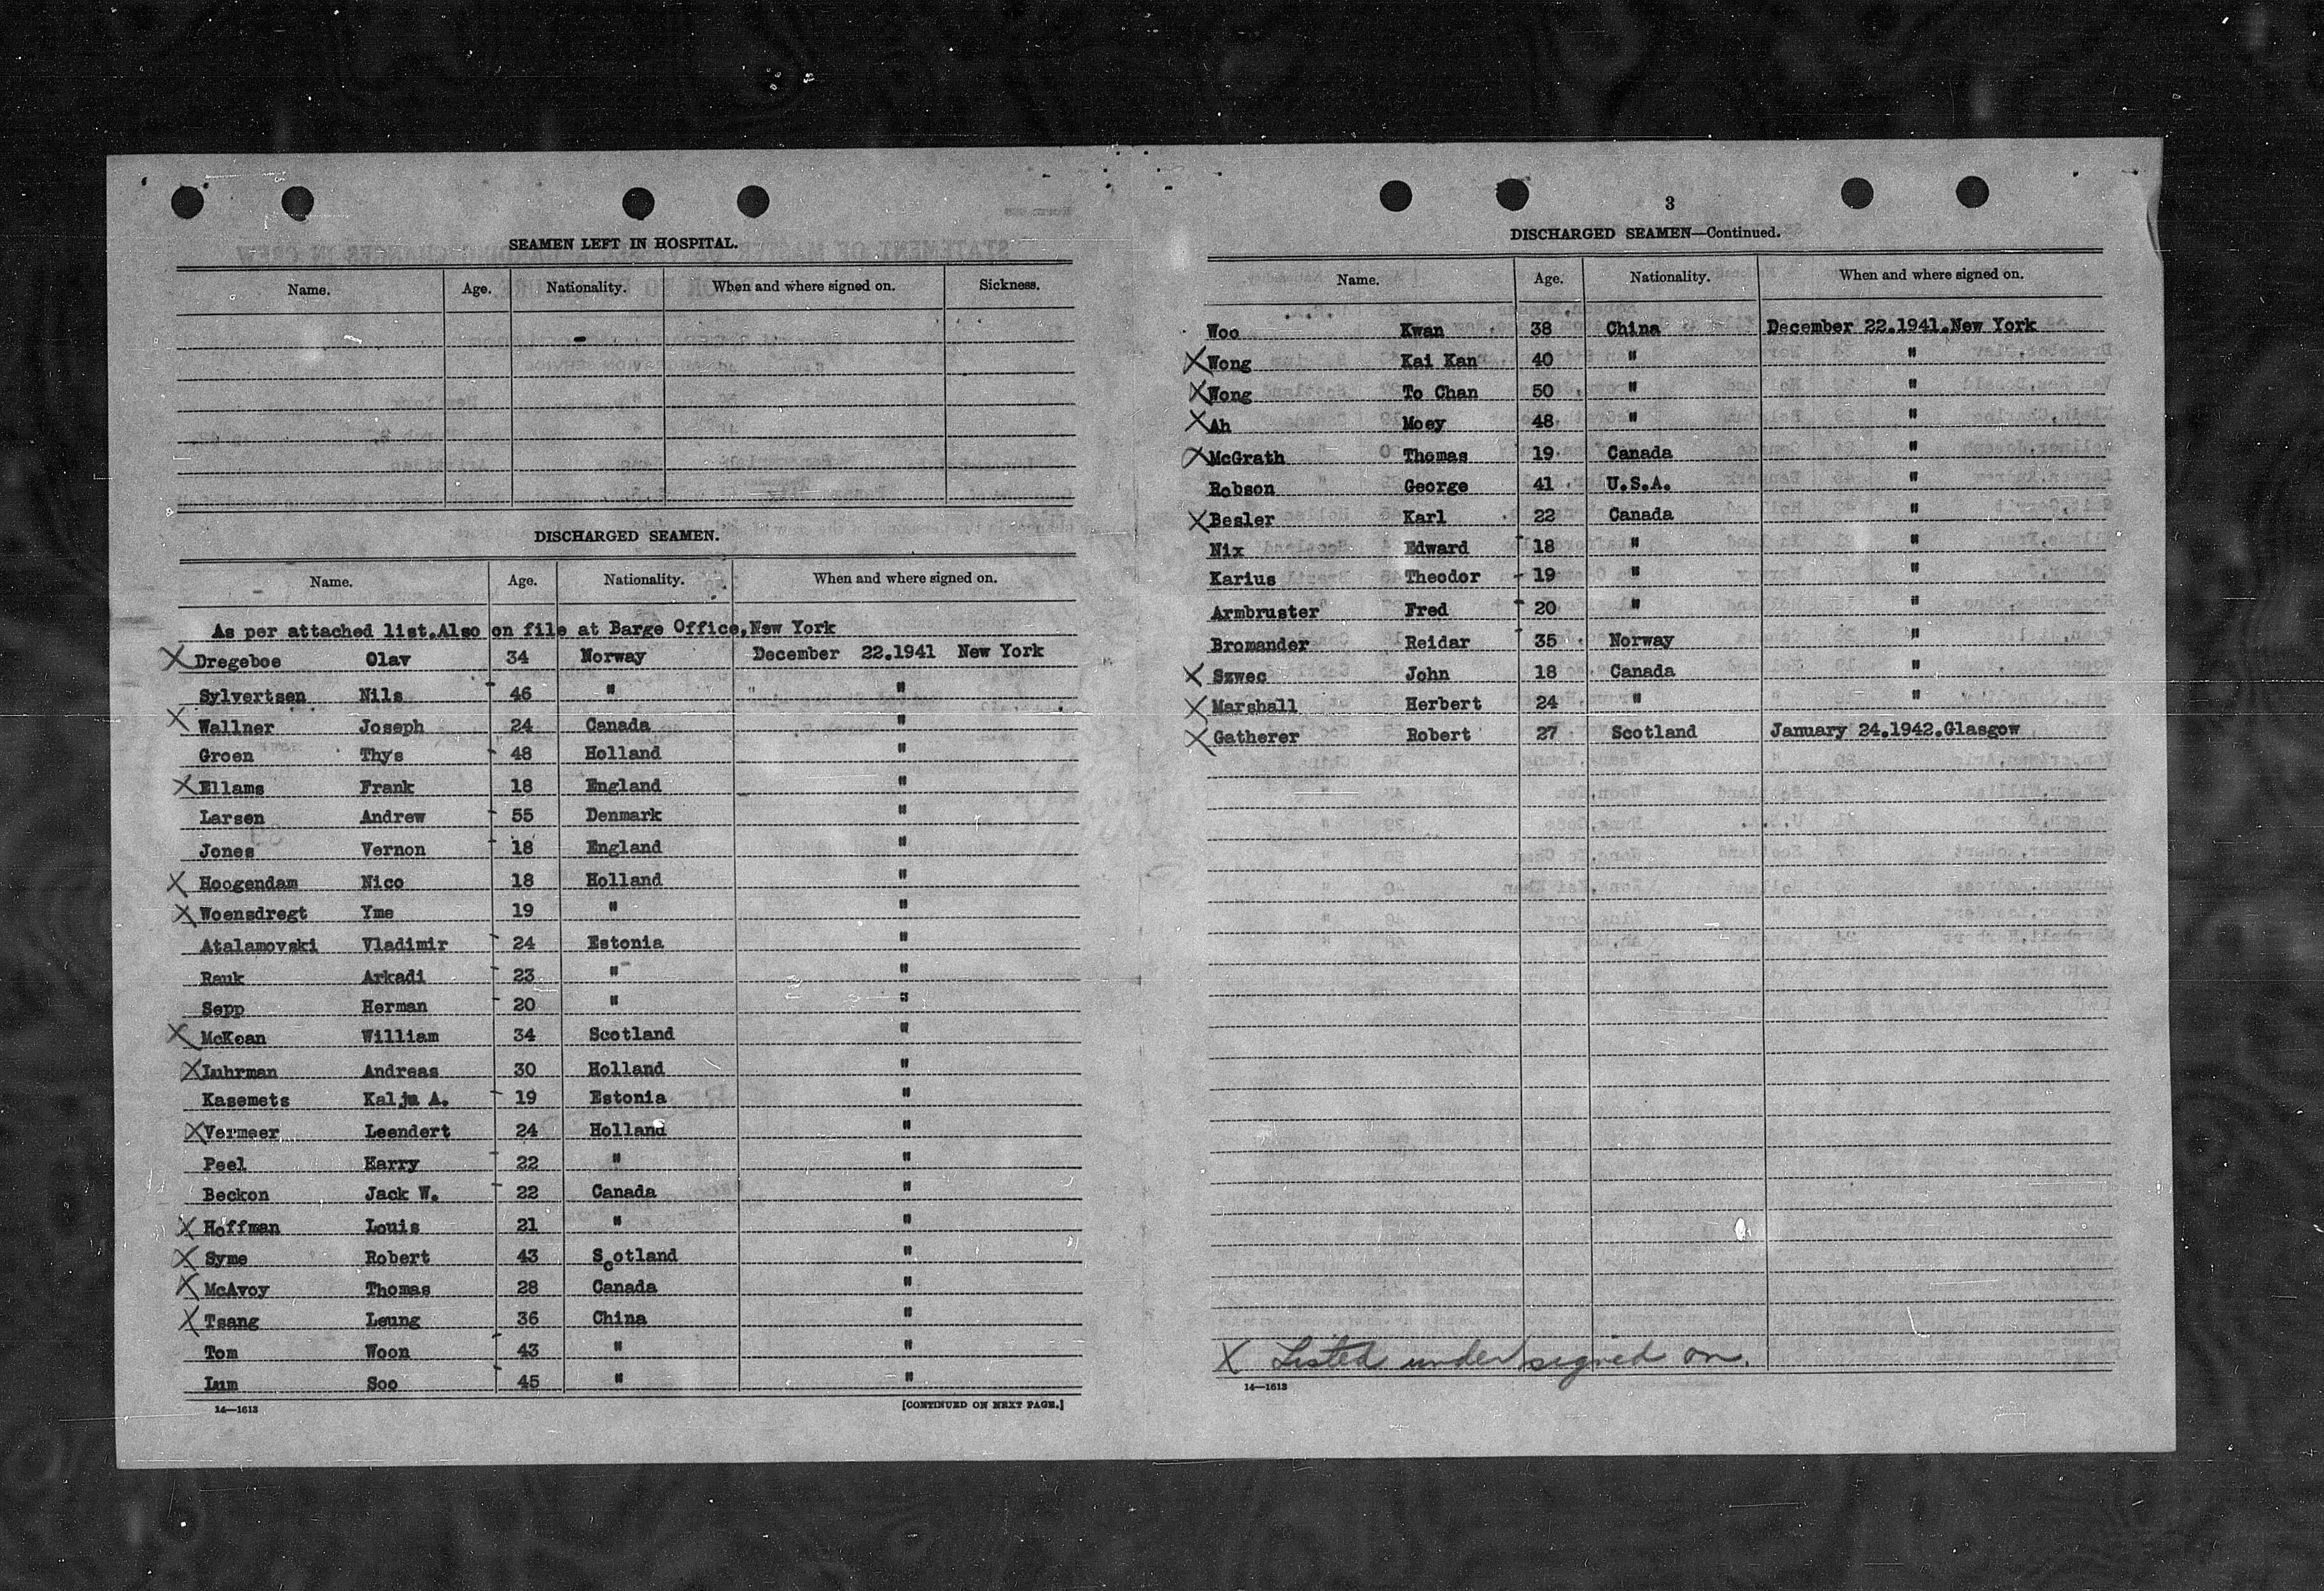 SEAMEN LEFT IN HOSPITAL.
Name. Age. Nationality. When and where signed on. Sickness.
DISCHARGED SEAMEN.
Name. Age. Nationality. When and where signed on.
As per attached list.Also on file at Barge Office,New York
X Dregeboe Olav 34 Norway December 22.1941 New York
Sylvertsen Nils 46 " " "
X Wallner Joseph 24 Canada "
Groen Thys 48 Holland "
X Ellams Frank 18 England "
Larsen Andrew 55 Denmark "
Jones Vernon 18 England "
X Hoogendam Nico 18 Holland "
X Woensdregt Yme 19 " "
Atalamovski Vladimir 24 Estonia "
Rauk Arkadi 23 " "
Sepp Herman 20 " "
X McKean William 34 Scotland "
X Luhrman Andreas 30 Holland "
Kasemets Kalju A. 19 Estonia "
X Vermeer Leendert 24 Holland "
Peel Harry 22 " "
Beckon Jack W. 22 Canada "
X Hoffman Louis 21 " "
X Syme Robert 43 Scotland "
X McAvoy Thomas 28 Canada "
X Tsang Leung 36 China "
Tom Woon 43 " "
Lum Soo 45 " "
14—1613 [CONTINUED ON NEXT PAGE.]
3
DISCHARGED SEAMEN—Continued.
Name. Age. Nationality. When and where signed on.
Woo Kwan 38 China December 22.1941.New York
X Wong Kai Kan 40 " "
X Wong To Chan 50 " "
X Ah Moey 48 " "
X McGrath Thomas 19 Canada "
Robson George 41 U.S.A. "
X Besler Karl 22 Canada "
Nix Edward 18 " "
Karius Theodor 19 " "
Armbruster Fred 20 " "
Bromander Reidar 35 Norway "
X Szwec John 18 Canada "
X Marshall Herbert 24 " "
X Gatherer Robert 27 Scotland January 24.1942.Glasgow
X Listed under signed on.
14—1613